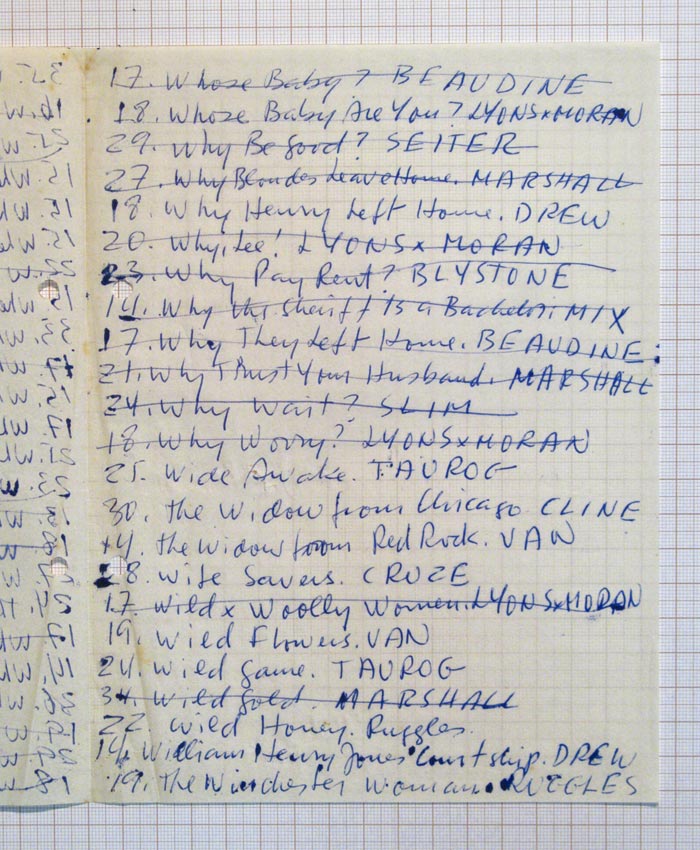 17. Whose Baby? BEAUDINE
18. Whose Baby Are You? LYONS x MORAN
29. Why Be Good? SEITER
27. Why Blondes Leave Home. MARSHALL
18. Why Henry Left Home. DREW
20. Why, Lee! LYONS x MORAN
23. Why Pay Rent? BLYSTONE
14. Why the Sheriff Is a Bachelor. MIX
17. Why They Left Home. BEAUDINE.
21. Why Trust Your Husband. MARSHALL
24. Why Wait? SLIM
18. Why Worry? LYONS x MORAN
25. Wide Awake. TAUROG
30. The Widow from Chicago CLINE
14. The Widow from Red Rock. VAN
28. Wife Savers. CRUZE
17. Wild x Woolly Women. LYONS x MORAN
19. Wild Flowers. VAN
24. Wild Game. TAUROG
34. Wild Gold. MARSHALL
22. Wild Honey. Ruggles.
14. William Henry Jones' Courtship. DREW
19. The Winchester Woman. RUGGLES